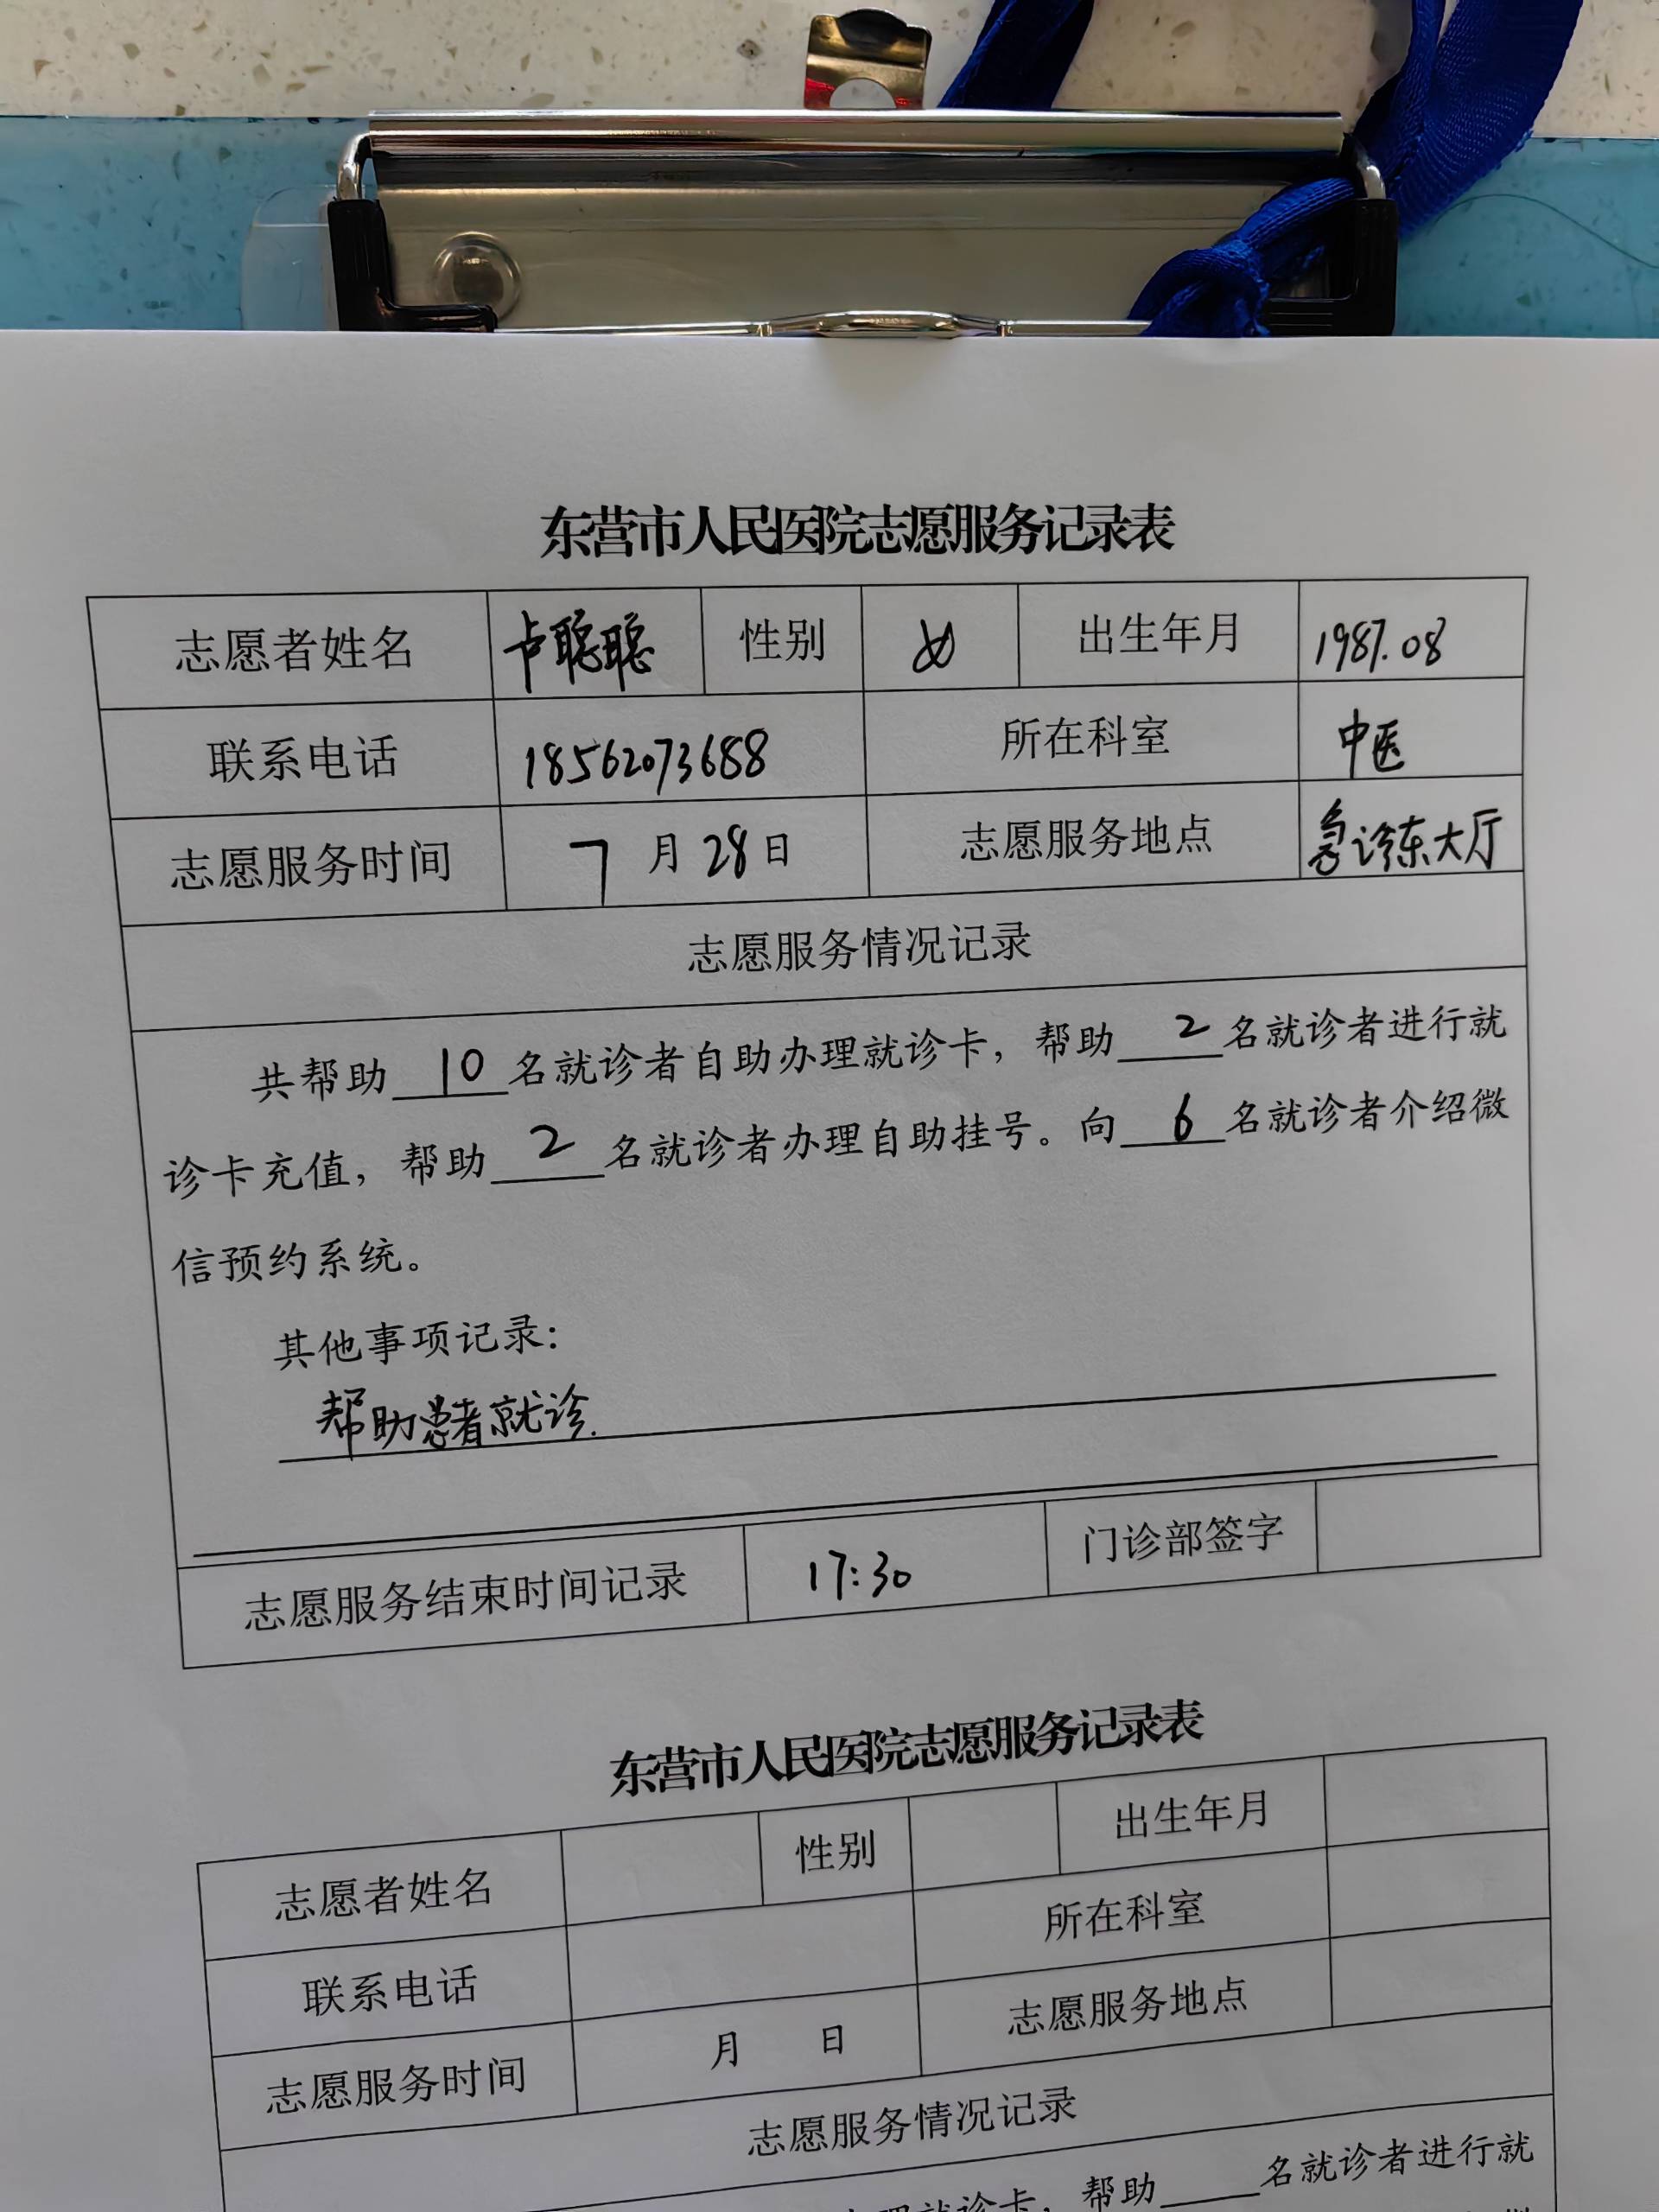 东营市人民医院志愿服务记录表
志愿者姓名 卢聪聪 性别 女 出生年月 1987.08
联系电话 18562073688 所在科室 中医
志愿服务时间 7月28日 志愿服务地点 急诊东大厅
志愿服务情况记录
共帮助10名就诊者自助办理就诊卡，帮助2名就诊者进行就
诊卡充值，帮助2名就诊者办理自助挂号。向6名就诊者介绍微
信预约系统。
其他事项记录：
帮助患者就诊.
志愿服务结束时间记录 17:30 门诊部签字
东营市人民医院志愿服务记录表
志愿者姓名 性别 出生年月
联系电话 所在科室
志愿服务时间 月 日 志愿服务地点
志愿服务情况记录
办理就诊卡，帮助____名就诊者进行就